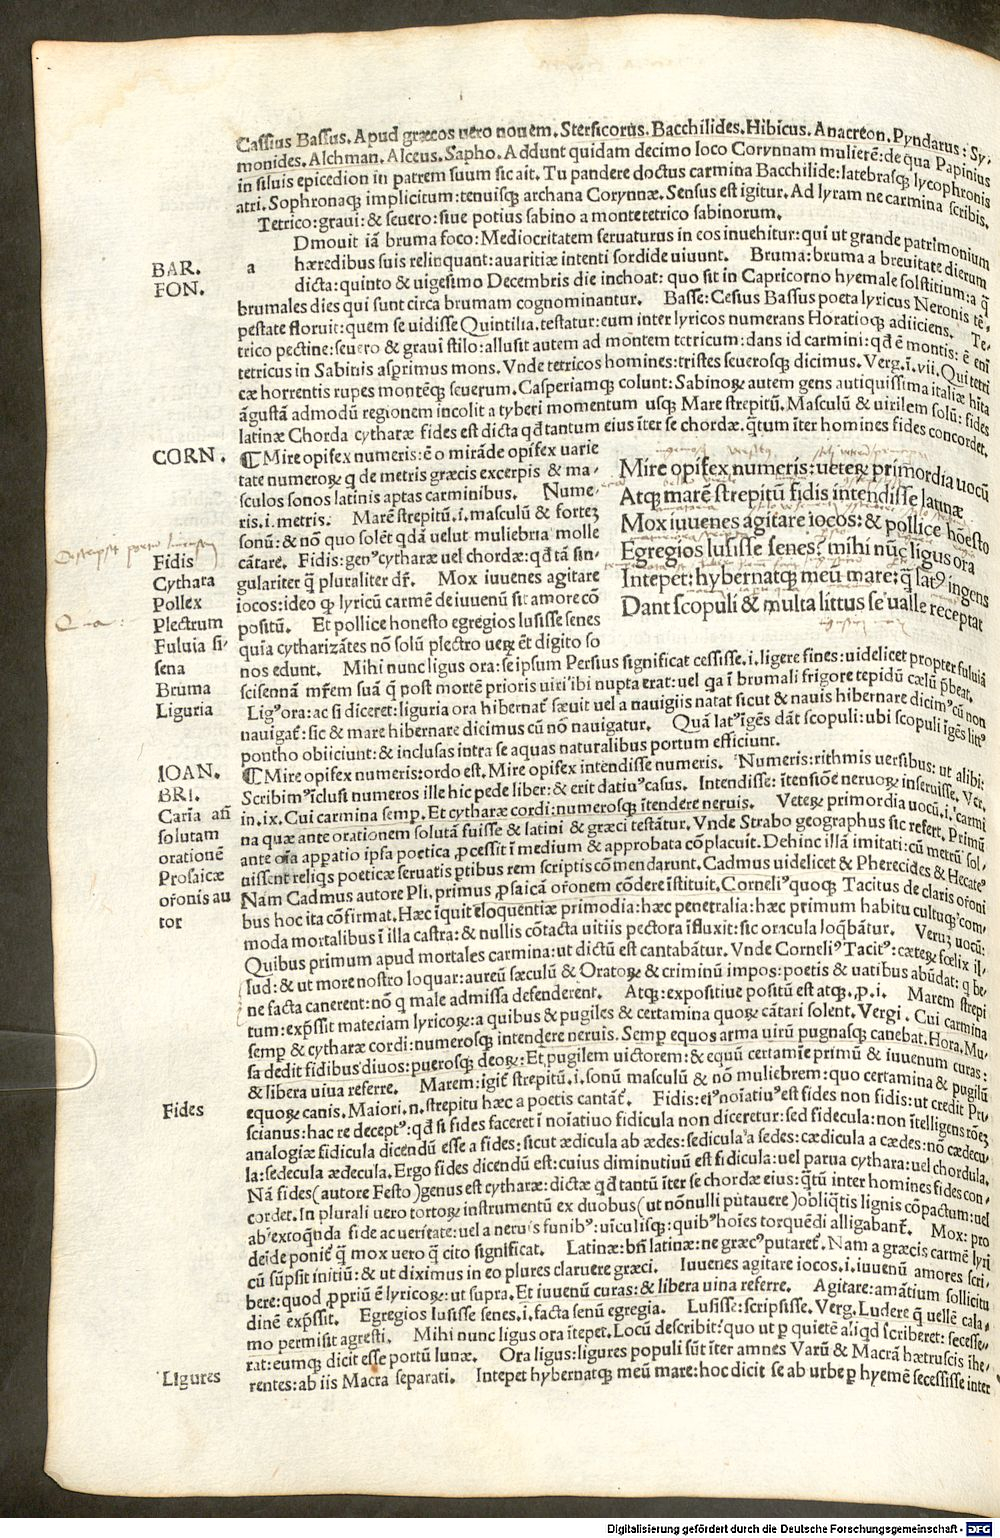 Cassius Bassus. Apud græcos vero novem. Stersicorus. Bacchilides. Hibicus. Anacreon. Pyndarus: Sy,
monides. Alchman. Alceus. Sapho. Addunt quidam decimo loco Corynnam mulierē: de qua Papinius
in siluis epicedion in patrem suum sic ait. Tu pandere doctus carmina Bacchilide: latebrasqꝫ lycophronis
atri. Sophronaqꝫ implicitum: tenuisqꝫ archana Corynnæ. Sensus est igitur. Ad lyram ne carmina scribis.
Tetrico: graui: & seuero: siue potius sabino a monte tetrico sabinorum.
BAR.
FON.
a
Dmouit iā bruma foco: Mediocritatem seruaturus in eos inuehitur: qui ut grande patrimonium
hæredibus suis relinquant: auaritiæ intenti sordide uiuunt. Bruma: bruma a breuitate dierum
dicta: quinto & uigesimo Decembris die inchoat: quo sit in Capricorno hyemale solstitium: a q̄
brumales dies qui sunt circa brumam cognominantur. Basse: Cesius Bassus poeta lyricus Neronis tē,
pestate floruit: quem se uidisse Quintilia. testatur: eum inter lyricos numerans Horatioqꝫ adiiciens. Te,
trico pectine: seuero & graui stilo: allusit autem ad montem tetricum: dans id carmini: qd̄ ē montis: ē eni
tetricus in Sabinis asprimus mons. Vnde tetricos homines: tristes seuerosqꝫ dicimus. Verg. ī. vii. Qui tetri
cæ horrentis rupes montēqꝫ seuerum. Casperiamqꝫ colunt: Sabinoꝝ autem gens antiquissima italiæ hīta
āgustā admodū regionem incolit a tyberi momentum usqꝫ Mare strepitū. Masculū & uirilem solū: fides
latinæ Chorda cytharæ fides est dicta qd̄ tantum eius īter se chordæ. q̄tum īter homines fides concordet.
CORN.
¶ Mire opifex numeris: ē o mirāde opifex uarie
tate numeroꝝ q de metris græcis excerpis & ma,
sculos sonos latinis aptas carminibus. Nume,
ris. i. metris. Marē strepitū. i. masculū & fortez
sonū: & nō quo solēt qdā uelut muliebria molle
cātare. Fidis: genꝰ cytharæ uel chordæ: qd̄ tā sin,
gulariter q̄ pluraliter dr̄. Mox iuuenes agitare
iocos: ideo ꝙ lyricū carmē de iuuenū sit amore cō
positū. Et pollice honesto egregios lusisse senes
quia cytharizātes nō solū plectro ueꝝ ēt digito so
nos edunt. Mihi nunc ligus ora: se ipsum Persius significat cessisse. i. ligere fines: uidelicet propter fuluiā
scisennā mr̄em suā q̄ post mortē prioris uiri ibi nupta erat: uel qa ī brumali frigore tepidū cælū p̄beat.
Ligꝰ ora: ac si diceret: liguria ora hibernat̄ sæuit uel a nauigiis natat sicut & nauis hibernare dicimꝰ cū non
nauigat̄: sic & mare hibernare dicimus cū nō nauigatur. Quā latꝰ īgēs dāt scopuli: ubi scopuli īgēs littꝰ
pontho obiiciunt: & inclusas intra se aquas naturalibus portum efficiunt.
Mire opifex numeris: ueteꝝ primordia uocū
Atqꝫ marē strepitū fidis intendisse latinæ
Mox iuuenes agitare iocos: & pollice hōesto
Egregios lusisse senes? mihi nūc ligus ora
Intepet: hybernatqꝫ meū mare: q̄ latꝰ ingens
Dant scopuli & multa littus se ualle receptat
Fidis
Cythara
Pollex
Plectrum
Fuluia si,
sena
Bruma
Liguria
IOAN.
BRI.
Caria an̄
solutam
orationē
Prosaicæ
or̄onis au
tor
¶ Mire opifex numeris: ordo est. Mire opifex intendisse numeris. Numeris: rithmis uersibus: ut alibi:
Scribimꝰ īclusi numeros ille hic pede liber: & erit datiuꝰ casus. Intendisse: ītensiōe neruoꝝ inseruisse. Ver,
in. ix. Cui carmina semp. Et cytharæ cordi: numerosqꝫ ītendere neruis. Veteꝝ primordia uocū. i. carmi
na quæ ante orationem solutā fuisse & latini & græci testātur. Vnde Strabo geographus sic refert. Primū
ante oīa apparatio ipsa poetica ꝓcessit ī medium & approbata cōplacuit. Dehinc illā imitati: cū metrū sol,
uissent reliqs poeticæ seruatis ꝑtibus rem scriptis cōmendarunt. Cadmus uidelicet & Pherecides & Hecateꝰ
Nam Cadmus autore Pli. primus ꝓsaicā or̄onem cōdere īstituit. Corneliꝰ quoqꝫ Tacitus de claris or̄oni
bus hoc ita cōfirmat. Hæc īquit eloquentiæ primodia: hæc penetralia: hæc primum habitu cultuqꝫ com,
moda mortalibus ī illa castra: & nullis cōtacta uitiis pectora īfluxit: sic oracula loqbātur. Veruꝫ uocū:
Quibus primum apud mortales carmina: ut dictū est cantabātur. Vnde Corneliꝰ Tacitꝰ: cæteꝝ fœlix il,
lud: & ut more nostro loquar: aureū sæculū & Oratoꝝ & criminū impos: poetis & uatibus abūdat: q be,
ne facta canerent: nō q male admissa defenderent. Atqꝫ: expositiue positū est atqꝫ. p. i. Marem strepi
tum: exp̄ssit materiam lyricoꝝ: a quibus & pugiles & certamina quoꝝ cātari solent. Vergi. Cui carmina
semp & cytharæ cordi: numerosqꝫ intendere neruis. Semp equos arma uirū pugnasqꝫ canebat. Hora. Mu,
sa dedit fidibus diuos: puerosqꝫ deoꝝ: Et pugilem uictorem: & equū certamīe primū & iuuenum curas:
& libera uiua referre. Marem: igit̄ strepitū. i. sonū masculū & nō muliebrem: quo certamina & pugilū
equoꝝ canis. Maiori. n. strepitu hæc a poetis cantāt̄. Fidis: eiꝰ noīatiuꝰ est fides non fidis: ut credit Pri,
scianus: hac re deceptꝰ: qd̄ si fides faceret ī noīatiuo fidicula non diceretur: sed fidecula: non ītelligens rōez
analogiæ fidicula dicendū esse a fides: sicut ædicula ab ædes: sedicula a sedes: cædicula a cædes: nō cædecu,
la: sedecula ædecula. Ergo fides dicendū est: cuius diminutiuū est fidicula: uel parua cythara: uel chordula.
Nā fides (autore Festo) genus est cytharæ: dictæ qd̄ tantū īter se chordæ eius: q̄tū inter homines fides con,
cordet. In plurali uero tortoꝝ instrumentū ex duobus (ut nōnulli putauere) obliq̄tis lignis cōpactum: uel
ab extoq̄nda fide ac ueritate: uel a neruis funibꝰ: uīculisqꝫ: quibꝰ hoīes torquēdi alligabant̄. Mox: pro
deīde ponit̄ q̄ mox uero q̄ cito significat. Latinæ: bn̄ latinæ: ne græcꝰ putaret̄. Nam a græcis carmē lyri
cū sūpsit initiū: & ut diximus in eo plures claruere græci. Iuuenes agitare iocos. i. iuuenū amores scri,
bere: quod ꝓpriū ē lyricoꝝ: ut supra. Et iuuenū curas: & libera uina referre. Agitare: amātium sollicitu
dinē exp̄ssit. Egregios lusisse senes. i. facta senū egregia. Lusisse: scripsisse. Verg. Ludere q̄ uellē cala,
mo permisit agresti. Mihi nunc ligus ora ītepet. Locū describit: quo ut ꝑ quietē aliqd scriberet: secesse,
rat: eumqꝫ dicit esse portū lunæ. Ora ligus: ligures populi sūt īter amnes Varū & Macrā hætruscis īhe,
rentes: ab iis Macra separati. Intepet hybernatqꝫ meū mare: hoc dicit se ab urbe ꝑ hyemē secessisse inter
Fides
Ligures
Digitalisierung gefördert durch die Deutsche Forschungsgemeinschaft - DFG